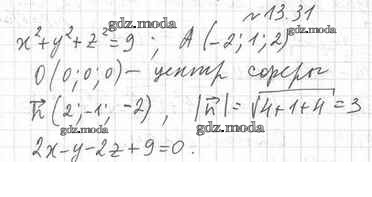 №13.31
gdz.moda
x²+y²+z²=9 ; A(-2; 1; 2)
gdz.moda
O(0; 0; 0) — центр сферы
gdz.moda
n⃗(2; -1; -2), |n⃗| = √4+1+4 = 3
gdz.moda gdz.moda
2x-y-2z+9=0.